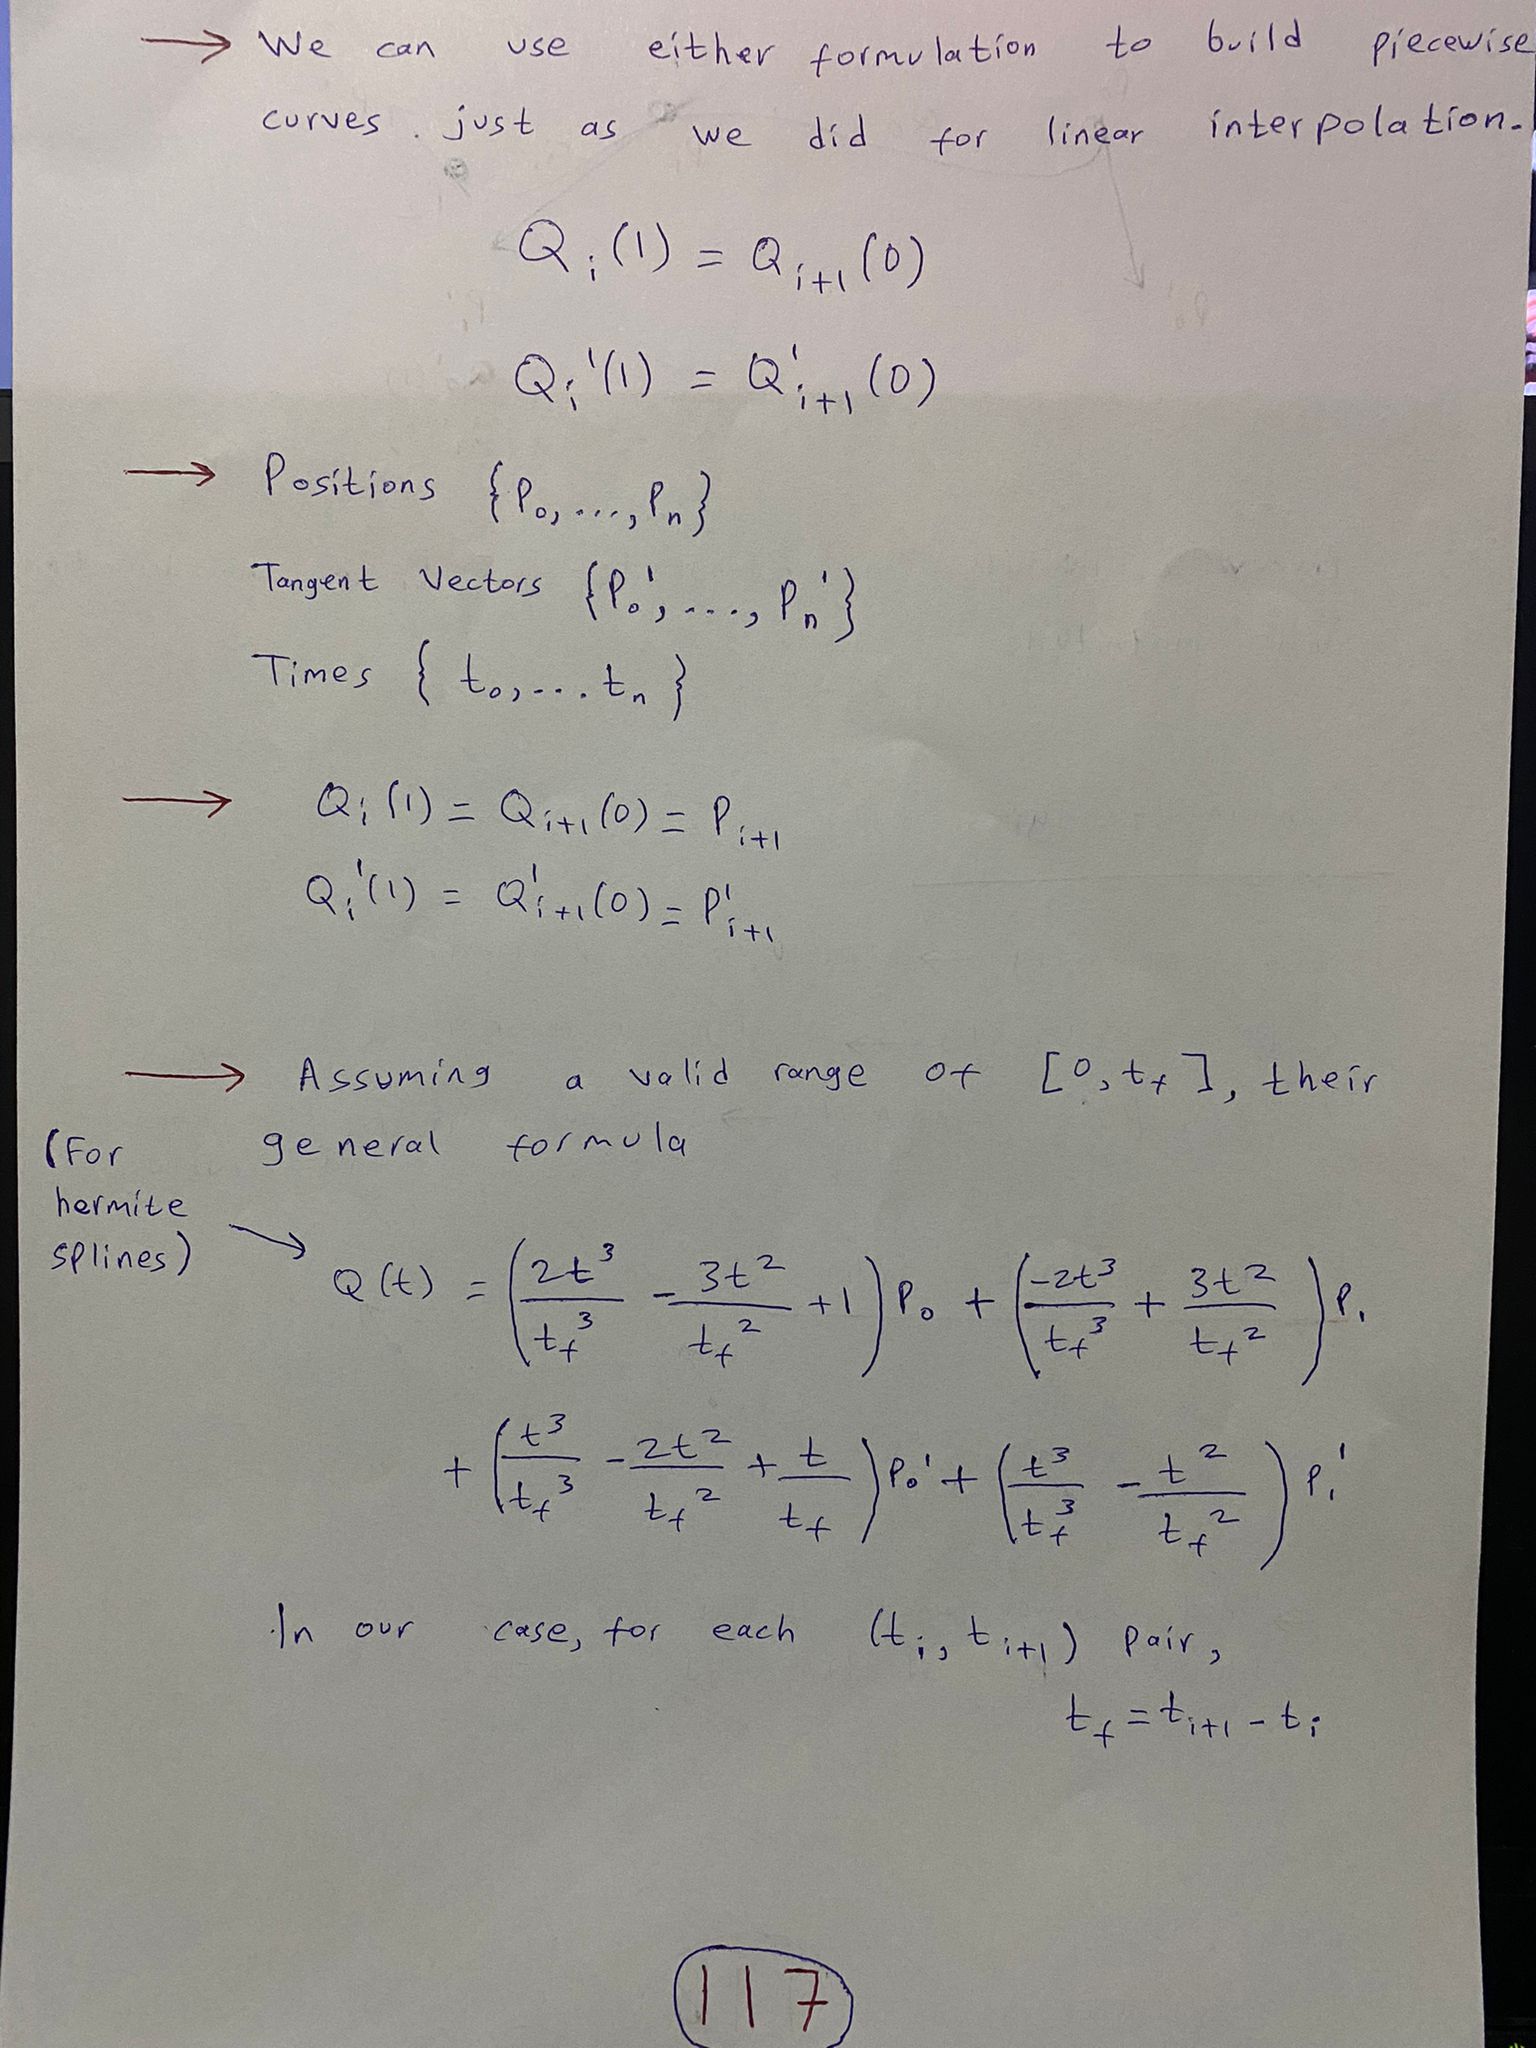 → We can use either formulation to build piecewise
curves. just as we did for linear interpolation.
Qᵢ(1) = Qᵢ₊₁(0)
Qᵢ'(1) = Q'ᵢ₊₁(0)
→ Positions {P₀, ..., Pₙ}
Tangent Vectors {P₀', ..., Pₙ'}
Times {t₀, ... tₙ}
→ Qᵢ(1) = Qᵢ₊₁(0) = Pᵢ₊₁
Qᵢ'(1) = Q'ᵢ₊₁(0) = P'ᵢ₊₁
→ Assuming a valid range of [0, t_f], their
general formula
(For
hermite
splines)
Q(t) = (2t³/t_f³ - 3t²/t_f² + 1) P₀ + (-2t³/t_f³ + 3t²/t_f²) P₁
+ (t³/t_f³ - 2t²/t_f² + t/t_f) P₀' + (t³/t_f³ - t²/t_f²) P₁'
In our case, for each (tᵢ, tᵢ₊₁) pair,
t_f = tᵢ₊₁ - tᵢ
117